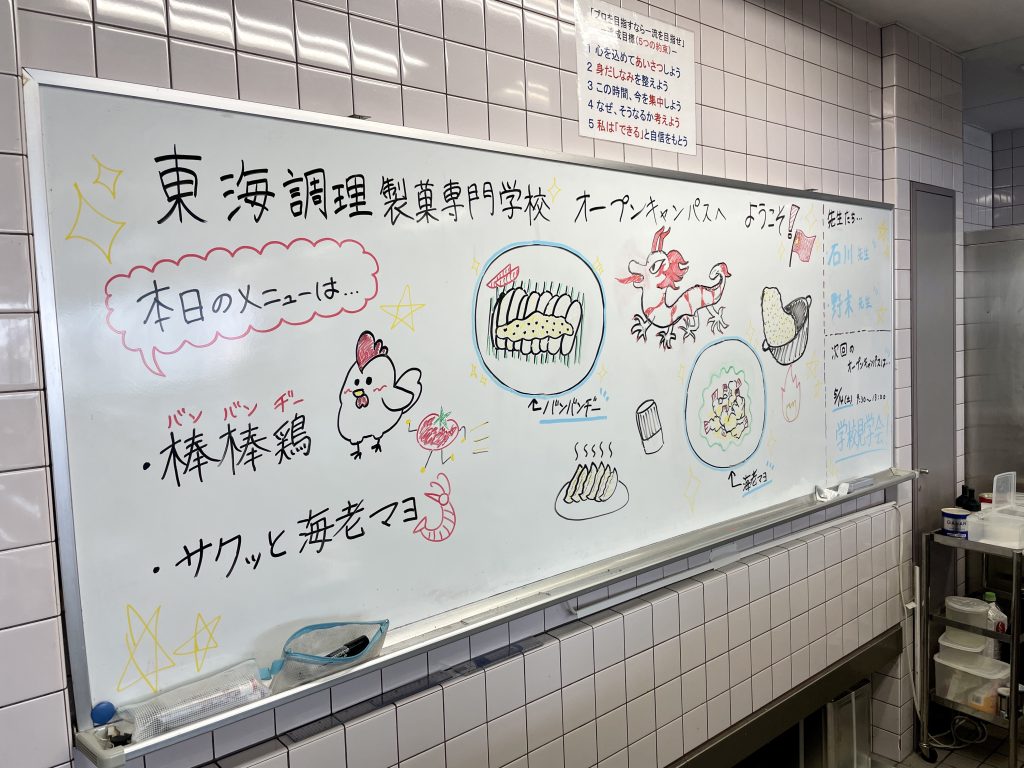 「プロを目指すなら一流を目指せ」
成目標(5つの約束)~
1 心を込めてあいさつしよう
2 身だしなみを整えよう
3 この時間、今を集中しよう
4 なぜ、そうなるか考えよう
5 私は「できる」と自信をもとう
東海調理製菓専門学校 オープンキャンパスへ ようこそ!
本日のメニューは…
バン バン ヂー
・棒棒鶏
・サクッと海老マヨ
←バンバンヂー
←海老マヨ
先生たち…
石川 先生
野末 先生
次回の
オープンキャンパスは…
5/14(土) 9:30~13:00
学校見学会!